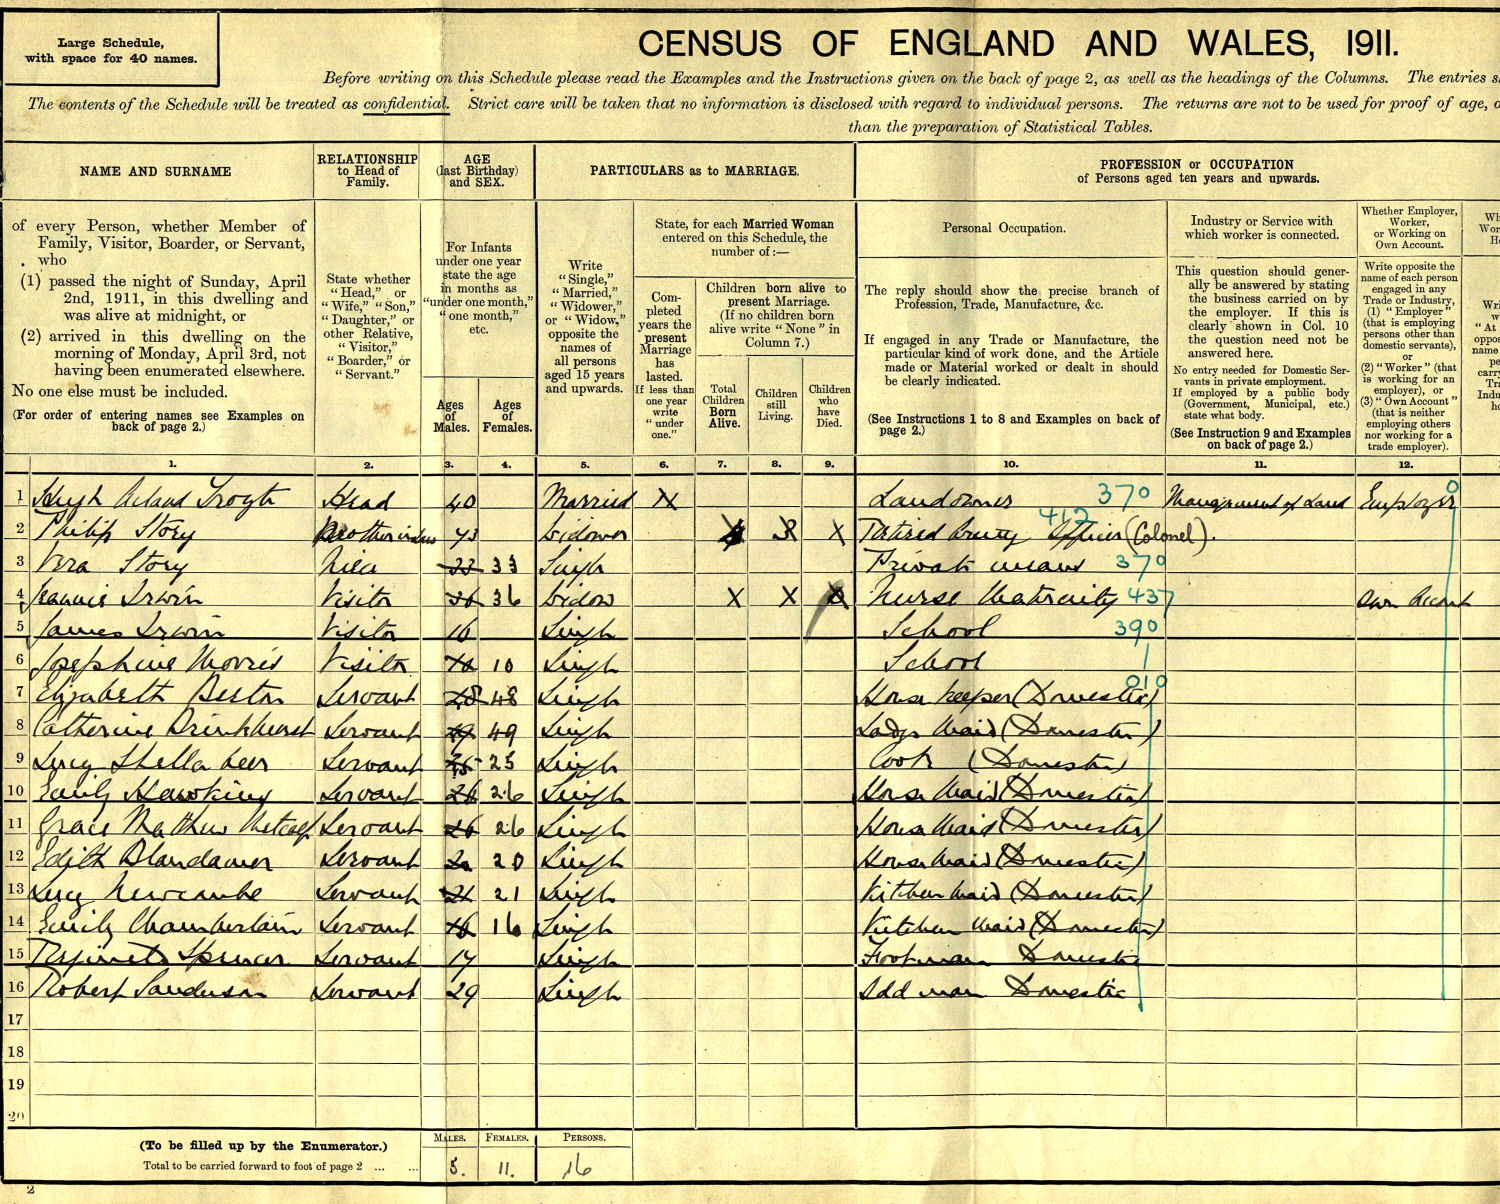 Large Schedule,
with space for 40 names.
CENSUS OF ENGLAND AND WALES, 1911.
Before writing on this Schedule please read the Examples and the Instructions given on the back of page 2, as well as the headings of the Columns. The entries
The contents of the Schedule will be treated as confidential. Strict care will be taken that no information is disclosed with regard to individual persons. The returns are not to be used for proof of age,
than the preparation of Statistical Tables.
NAME AND SURNAME
of every Person, whether Member of
Family, Visitor, Boarder, or Servant,
who
(1) passed the night of Sunday, April
2nd, 1911, in this dwelling and
was alive at midnight, or
(2) arrived in this dwelling on the
morning of Monday, April 3rd, not
having been enumerated elsewhere.
No one else must be included.
(For order of entering names see Examples on
back of page 2.)
RELATIONSHIP
to Head of
Family.
State whether
"Head," or
"Wife," "Son,"
"Daughter," or
other Relative,
"Visitor,"
"Boarder," or
"Servant."
AGE
(last Birthday)
and SEX.
For Infants
under one year
state the age
in months as
"under one month,"
"one month,"
etc.
Ages
of
Males.
Ages
of
Females.
PARTICULARS as to MARRIAGE.
Write
"Single,"
"Married,"
"Widower,"
or "Widow,"
opposite the
names of
all persons
aged 15 years
and upwards.
State, for each Married Woman
entered on this Schedule, the
number of:—
Com-
pleted
years the
present
Marriage
has
lasted.
If less than
one year
write
"under
one."
Children born alive to
present Marriage.
(If no children born
alive write "None" in
Column 7.)
Total
Children
Born
Alive.
Children
still
Living.
Children
who
have
Died.
PROFESSION or OCCUPATION
of Persons aged ten years and upwards.
Personal Occupation.
The reply should show the precise branch of
Profession, Trade, Manufacture, &c.
If engaged in any Trade or Manufacture, the
particular kind of work done, and the Article
made or Material worked or dealt in should
be clearly indicated.
(See Instructions 1 to 8 and Examples on back of
page 2.)
Industry or Service with
which worker is connected.
This question should gener-
ally be answered by stating
the business carried on by
the employer. If this is
clearly shown in Col. 10
the question need not be
answered here.
No entry needed for Domestic Ser-
vants in private employment.
If employed by a public body
(Government, Municipal, etc.)
state what body.
(See Instruction 9 and Examples
on back of page 2.)
Whether Employer,
Worker,
or Working on
Own Account.
Write opposite the
name of each person
engaged in any
Trade or Industry,
(1) "Employer"
(that is employing
persons other than
domestic servants),
or
(2) "Worker" (that
is working for an
employer), or
(3) "Own Account"
(that is neither
employing others
nor working for a
trade employer).
1. 2. 3. 4. 5. 6. 7. 8. 9. 10. 11. 12.
1 Hugh Acland Troyte Head 40 Married X Landowner 370 Management of Land Employer 0
2 Philip Story Brother in law 73 Widower X X Retired Army Officer (Colonel). 412
3 Vera Story Niece 33 33 Single Private means 370
4 Jeannie Irwin Visitor 36 36 Widow X X Nurse Maternity 437 Own Account
5 James Irwin Visitor 16 Single School 390
6 Josephine Morris Visitor 10 10 Single School
7 Elizabeth Beeton Servant 48 48 Single House keeper (Domestic) 010
8 Catherine Drinkhurst Servant 49 49 Single Ladys Maid (Domestic)
9 Lucy Shellabeer Servant 25 25 Single Cook (Domestic)
10 Emily Hawkins Servant 26 26 Single House Maid (Domestic)
11 Grace Matthew Metcalf Servant 26 26 Single House Maid (Domestic)
12 Edith Blandamer Servant 20 20 Single House Maid (Domestic)
13 Lucy Newcombe Servant 21 21 Single Kitchen Maid (Domestic)
14 Emily Chamberlain Servant 16 16 Single Kitchen Maid (Domestic)
15 Reginald Spencer Servant 17 Single Footman Domestic
16 Robert Sanderson Servant 29 Single Odd man Domestic
17
18
19
20
(To be filled up by the Enumerator.)
Total to be carried forward to foot of page 2 ... ...
MALES. FEMALES. PERSONS.
5. 11. 16
2